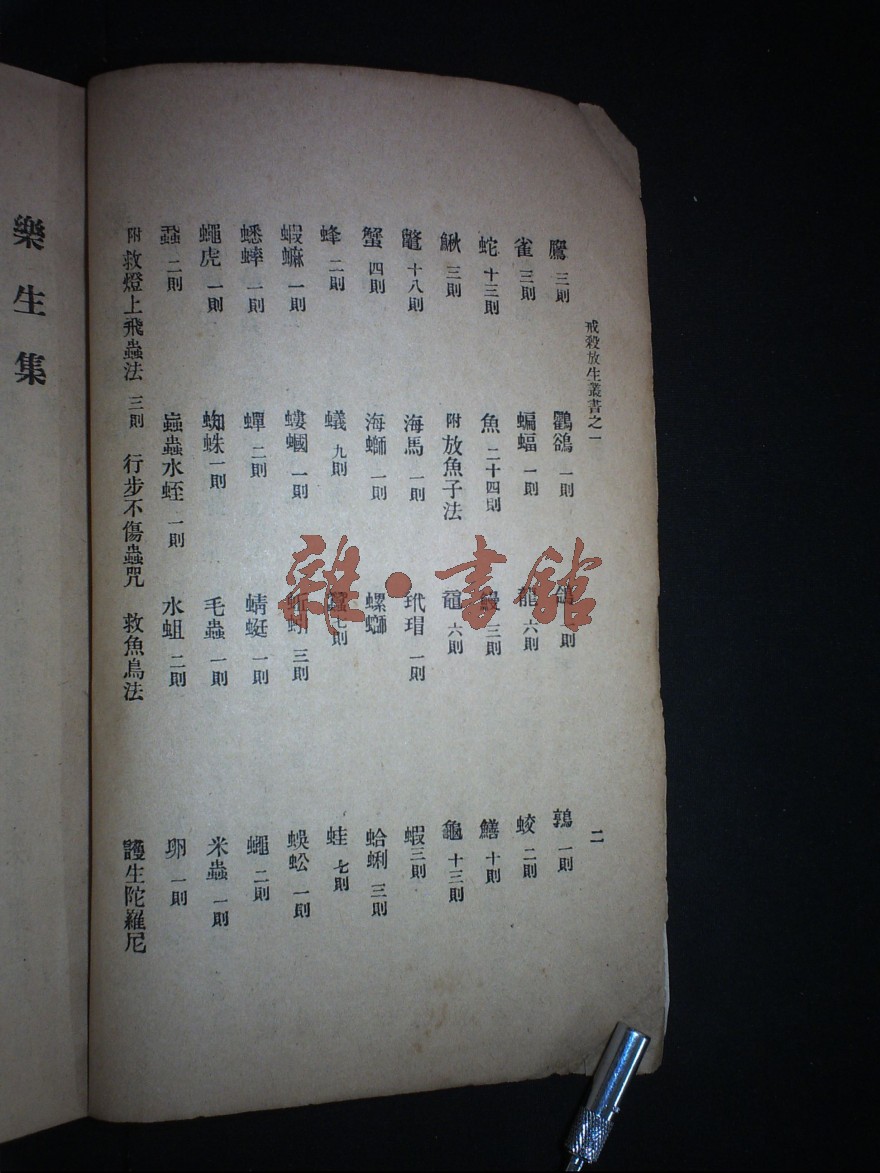 戒殺放生叢書之一 二
鷹 三則 鸜鵒 一則 鴿 則 鶉 一則
雀 三則 蝙蝠 一則 龍 六則 蛟 二則
蛇 十三則 魚 二十四則 鰻 三則 鱔 十則
鰍 三則 附放魚子法 黿 六則 龜 十三則
鼈 十八則 海馬 一則 玳瑁 一則 蝦 三則
蟹 四則 海螄 一則 螺螄 蛤蜊 三則
蜂 二則 蟻 九則 七則 蛙 七則
蝦蟆 一則 螻蟈 一則 蚯蚓 三則 蜈蚣 一則
蟋蟀 一則 蟬 二則 蜻蜓 一則 蠅 二則
蠅虎 一則 蜘蛛 一則 毛蟲 一則 米蟲 一則
蝨 二則 蟲水蛭 一則 水蛆 二則 卵 一則
附 救燈上飛蟲法 三則 行步不傷蟲咒 救魚鳥法 護生陀羅尼
樂生集
雜·書館